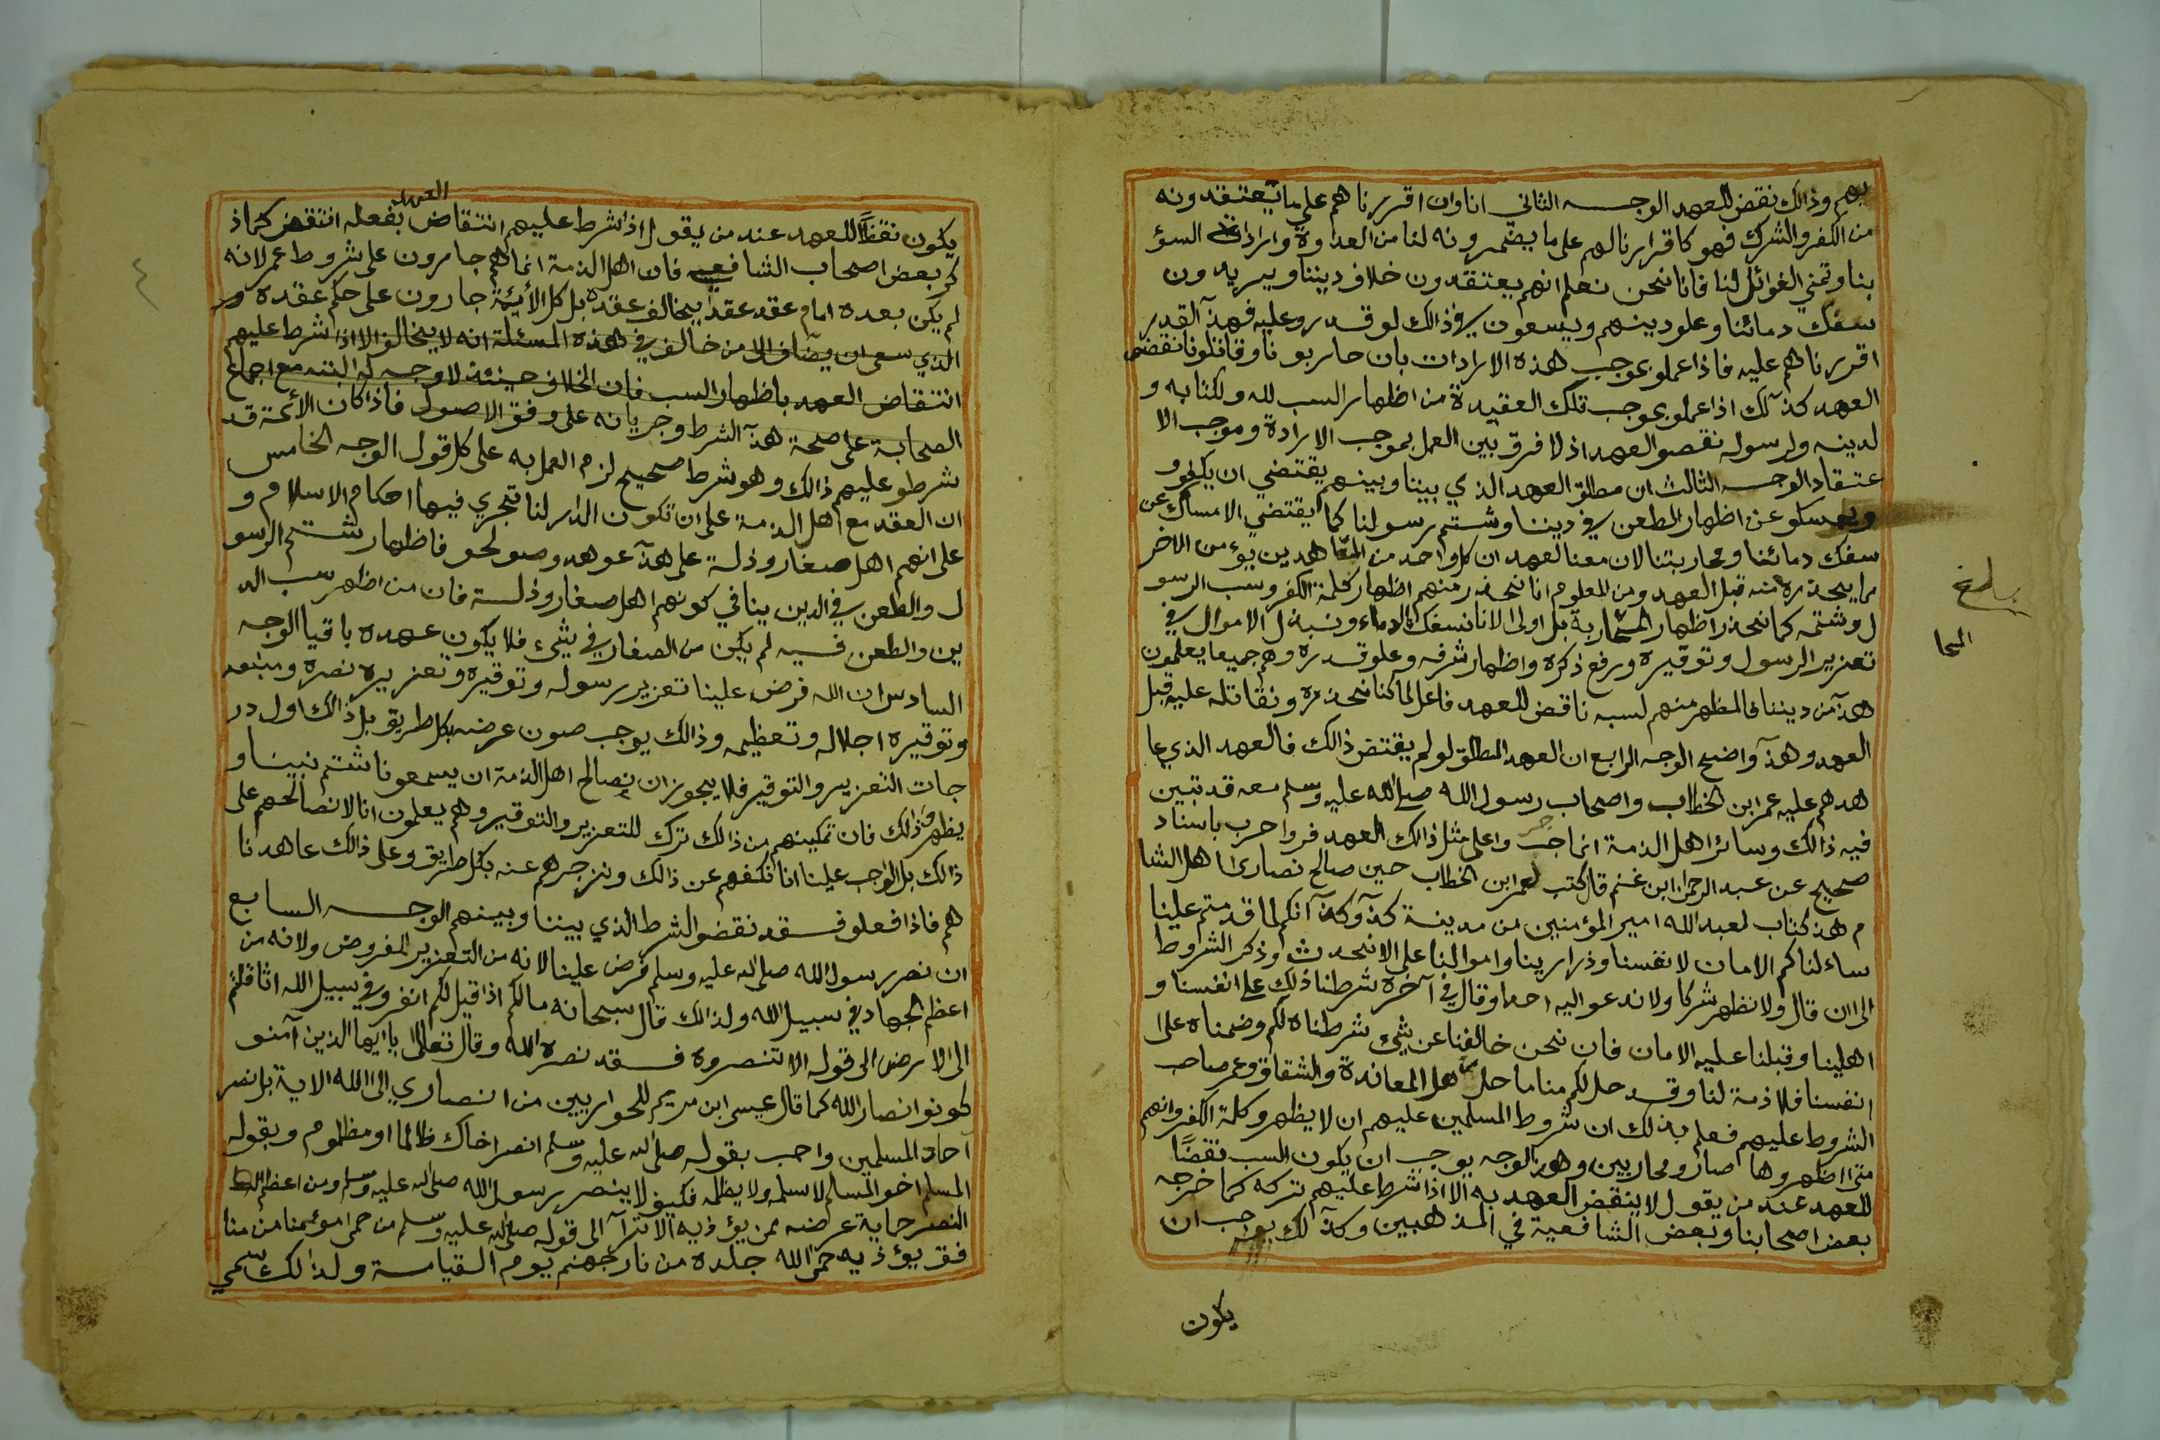 بهم وذالك نقض للعهد الوجه الثاني انا وان اقررنا هم على ما يعتقدونه
من الكفر والشرك فهو كا قرارنا لهم على ما يضمرونه لنا من العداوة وارادات السؤ
بنا وتمني الغوائل لنا فانا نحن نعلم انهم يعتقدون خلاف ديننا ويريدون
سفك دمائنا وعلو دينهم ويسعون في ذالك لو قدرو عليه فهذآ القدر
اقررنا هم عليه فاذا عملو بموجب هذه الارادات بان حاربونا وقاتلونا نقضو
العهد كذآلك اذا عملو بموجب تلك العقيدة من اظهار السب لله ولكتابه و
لدينه ولرسوله نقصو العهد اذ لا فرق بين العمل بموجب الارادة وموجب الا
عتقاد الوجه الثالث ان مطلق العهد الذي بيننا وبينهم يقتضي ان يكفو و
ويمسكو عن اظهار الطعن في ديننا وشتم رسولنا كما يقتضي الامساك عن
سفك دمائنا ومحاربتنا لان معنا العهد ان كل واحد من المتعاهدين يؤمن الاخر
مما يحذره منه قبل العهد ومن المعلوم انا نحذر منهم اظهار كلمة الكفر وسب الرسو
ل وشتمه كما نحذر اظهار المحاربة بل اولى لانا نسفك الدماء ونبذل الاموال في
تعزير الرسول وتوقيره ورفع ذكره واظهار شرفه وعلو قدره وهم جميعا يعلمون
هذآ من ديننا فالمظهر منهم لسبه ناقض للعهد فاعل لما كنا نحذره ونقاتله عليه قبل
العهد وهذآ واضح الوجه الرابع ان العهد المطلق لو لم يقتض ذالك فالعهد الذي عا
هدهم عليه عمر ابن الخطاب واصحاب رسول الله صلى الله عليه وسلم معه قد تبين
فيه ذالك وسائر اهل الذمة انما جر واعلى مثل ذالك العهد فروا حرب باسناد
صحيح عن عبد الرحمان ابن غنم قال كتب لعمر ابن الخطاب حين صالح نصارى اهل الشا
م هذ كتاب لعبد الله امير المؤمنين من مدينة كذآ وكذآ انكم لما قدمتم علينا
ساءلناكم الامان لانفسنا وذرارينا واموالنا على الا نحدث وذكر الشروط
الى ان قال ولا نظهر شركا ولا ندعو اليه احدا وقال في آخره شرطنا ذلك على انفسنا و
اهلينا وقبلنا عليه الامان فان نحن خالفنا عن شيئ شرطناه لكم وضمناه على
انفسنا فلا ذمة لنا وقد حل لكم منا ما حل من اهل المعاندة والشقاق وعمر صاحب
الشروط عليهم فعلم بذلك ان شروط المسلمين عليهم ان لا يظهرو كلمة الكفر وانهم
متى اظهروها صارو محاربين وهذ الوجه يوجب ان يكون السب نقضًا
للعهد عند من يقول لا ينقض العهد به الا اذا شرط عليهم تركه كما خرجه
بعض اصحابنا وبعض الشافعية في المذهبين وكذآلك يوجب ان
يكون
المحا
العهد
يكون نقضًا للعهد عند من يقول اذا شرط عليهم انتقاض بفعله انتقض كماذ
كر بعض اصحاب الشافعي فان اهل الذمة انما هم جارون على شروط عمر لانه
لم يكن بعده امام عقد عقدا يخالف عقده بل كل الأئمة جارون على حكم عقده و
الذي سعى ان يضاف الى من خالف في هذه المسئلة انه لا يخالف الا اذا شرط عليهم
انتقاض العهد باظهار السب فان الخلاف حينئذ لا وجه له البته مع اجماع
الصحابة على صحة هذآ الشرط وجريانه على وفق الاصول فاذا كان الأئمة قد
شرطو عليهم ذالك وهو شرط صحيح لزم العمل به على كل قول الوجه الخامس
ان العقد مع اهل الذمة على ان تكون الدار لنا تجري فيها احكام الاسلام و
على انهم اهل صغار وذلة على هذآ عوهدو وصولحو فاظهار شتم الرسو
ل والطعن في الدين ينافي كونهم اهل صغار وذلة فان من اظهر سب الد
ين والطعن فيه لم يكن من الصغار في شيئ فلا يكون عهده باقيا الوجه
السادس ان الله فرض علينا تعزير رسوله وتوقيره وتعزيره نصره ومنعه
وتوقيره اجلاله وتعظيمه وذالك يوجب صون عرضه بكل طريق بل ذالك اول در
جات التعزير والتوقير فلا يجوز ان نصالح اهل الذمة ان يسمعونا شتم نبينا و
يظهرو ذلك فان تمكينهم من ذالك ترك للتعزير والتوقير وهم يعلمون انا لا نصالحهم على
ذالك بل الواجب علينا انا نكفهم عن ذالك ونزجرهم عنه بكل طريق وعلى ذالك عاهدنا
هم فاذا فعلو فقد نقضو الشرط الذي بيننا وبينهم الوجه السابع
ان نصر رسول الله صلى الله عليه وسلم فرض علينا لانه من التعزير المفروض ولانه من
اعظم الجهاد في سبيل الله ولذالك قال سبحانه مالكم اذا قيل لكم انفرو في سبيل الله اثاقلتم
الى الارض الى قوله الا تنصروه فقد نصره الله وقال تعالى يا ايها الذين آمنو
كونو انصار الله كما قال عيسى ابن مريم للحواريين من انصاري إلى الله الاية بل نصر
آحاد المسلمين واجب بقوله صلى الله عليه وسلم انصر اخاك ظالما او مظلوم وبقوله
المسلم اخو المسلم لا يسلمه ولا يظلمه فكيف لا ينصر رسول الله صلى الله عليه وسلم ومن اعظم
النصر حماية عرضه ممن يؤذيه الا ترآ الى قوله صلى الله عليه وسلم من حمى مؤمنا من منا
فق يؤذيه حمى الله جلده من نار جهنم يوم القيامة ولذالك سمي
٤